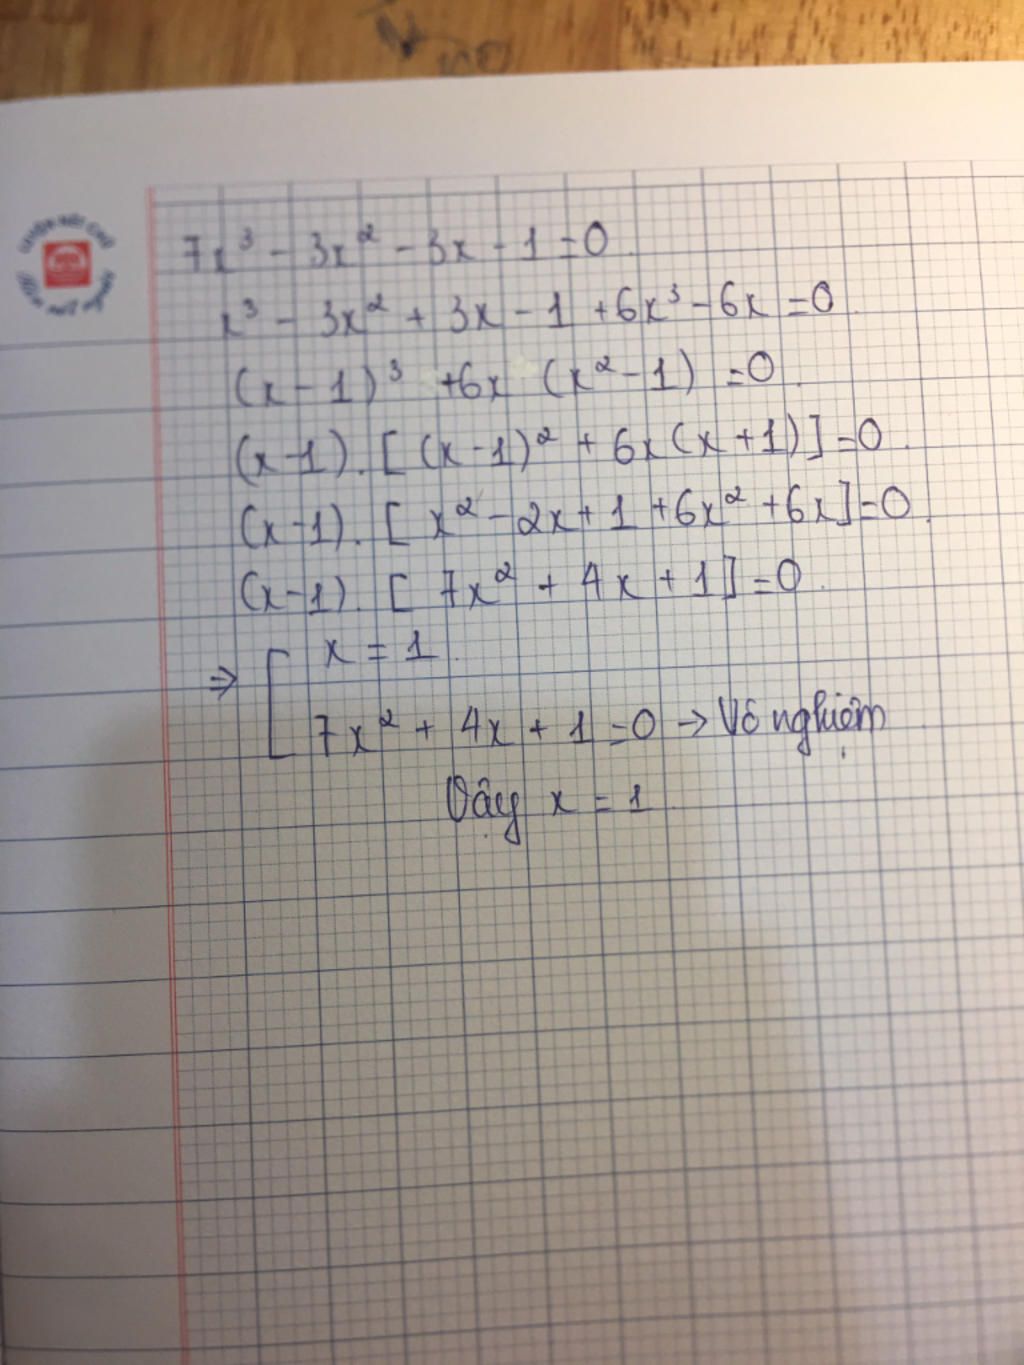 7x³ - 3x² - 3x - 1 = 0
x³ - 3x² + 3x - 1 + 6x³ - 6x = 0
(x - 1)³ + 6x (x² - 1) = 0
(x - 1). [(x - 1)² + 6x(x + 1)] = 0
(x - 1). [x² - 2x + 1 + 6x² + 6x] = 0
(x - 1). [7x² + 4x + 1] = 0
⇒ [ x = 1
7x² + 4x + 1 = 0 → Vô nghiệm
Vậy x = 1